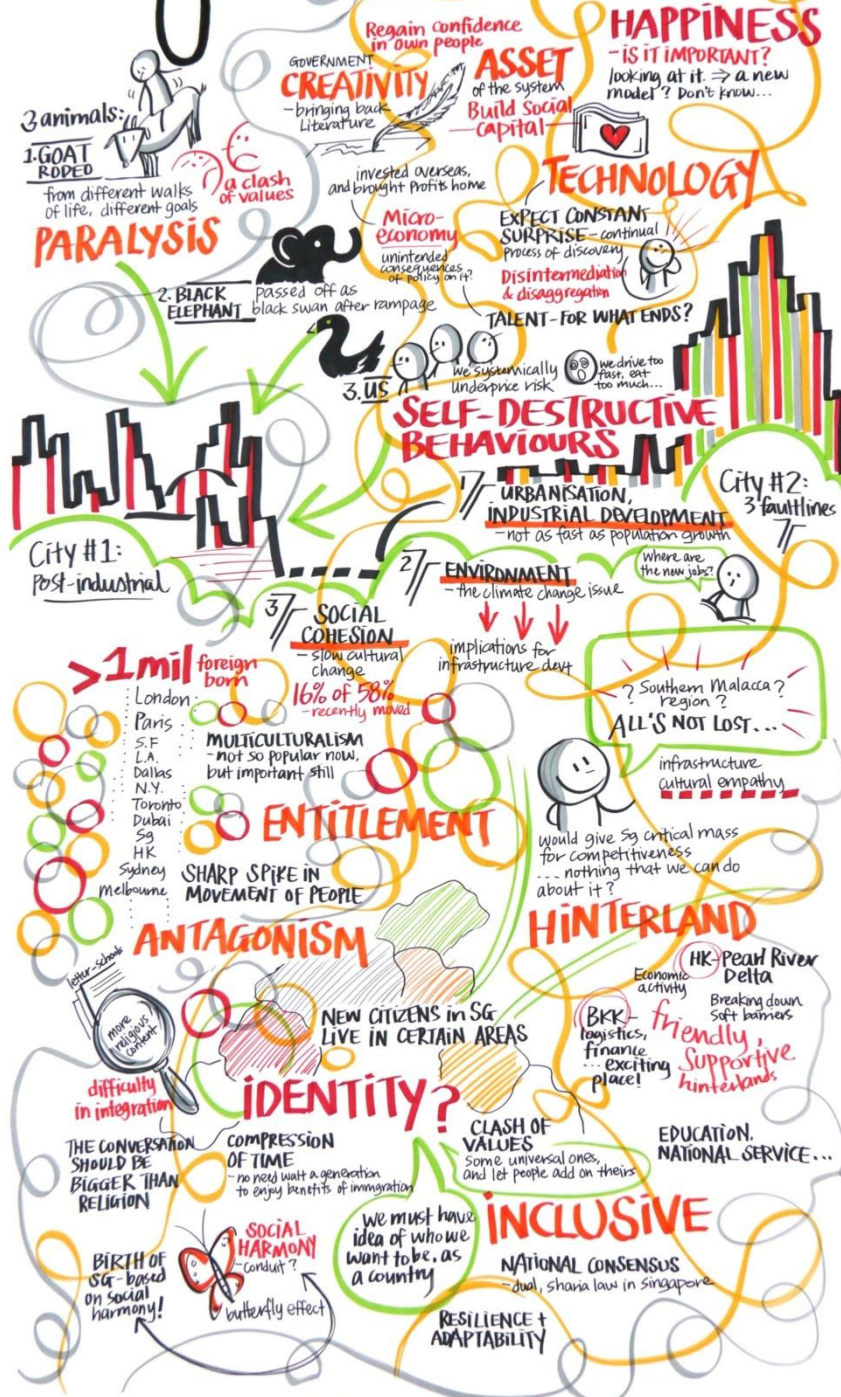 Regain confidence
in own people
HAPPINESS
- IS IT IMPORTANT?
looking at it. ⇒ a new
model? Don't know...
GOVERNMENT
CREATIVITY
- bringing back
Literature
ASSET
of the system
Build Social
Capital
3 animals:
1. GOAT
RODEO
from different walks
of life, different goals
a clash
of values
PARALYSIS
invested overseas,
and brought profits home
Micro-
economy
unintended
consequences
of policy on it?
TECHNOLOGY
EXPECT CONSTANT
SURPRISE - continual
process of discovery
Disintermediation
& disaggregation
TALENT - FOR WHAT ENDS?
2. BLACK
ELEPHANT
passed off as
black swan after rampage
3. US
we systemically
underprice risk
we drive too
fast, eat
too much...
SELF-DESTRUCTIVE
BEHAVIOURS
City #1:
Post-industrial
City #2:
3 faultlines
1
URBANISATION,
INDUSTRIAL DEVELOPMENT
- not as fast as population growth
2
ENVIRONMENT
- the climate change issue
implications for
infrastructure devt
where are
the new jobs?
3
SOCIAL
COHESION
- slow cultural
change
>1mil foreign
born
London
Paris
S.F
L.A.
Dallas
N.Y.
Toronto
Dubai
Sg
HK
Sydney
Melbourne
16% of 58%
- recently moved
MULTICULTURALISM
- not so popular now,
but important still
ENTITLEMENT
SHARP SPIKE IN
MOVEMENT OF PEOPLE
ANTAGONISM
? Southern Malacca?
region?
ALL'S NOT LOST...
infrastructure
cultural empathy
would give Sg critical mass
for competitiveness
... nothing that we can do
about it?
HINTERLAND
HK - Pearl River
Delta
Economic
activity
Breaking down
soft barriers
BKK -
logistics,
finance
... exciting
place!
friendly,
supportive
hinterlands
EDUCATION,
NATIONAL SERVICE...
letter-schools
more
religious
content
difficulty
in integration
NEW CITIZENS in SG
LIVE IN CERTAIN AREAS
IDENTITY?
THE CONVERSATION
SHOULD BE
BIGGER THAN
RELIGION
COMPRESSION
OF TIME
- no need wait a generation
to enjoy benefits of immigration
CLASH OF
VALUES
Some universal ones,
and let people add on theirs
we must have
idea of who we
want to be, as
a country
INCLUSIVE
NATIONAL CONSENSUS
- dual, sharia law in Singapore
RESILIENCE +
ADAPTABILITY
BIRTH OF
SG - based
on social
harmony!
SOCIAL
HARMONY
- conduit?
butterfly effect